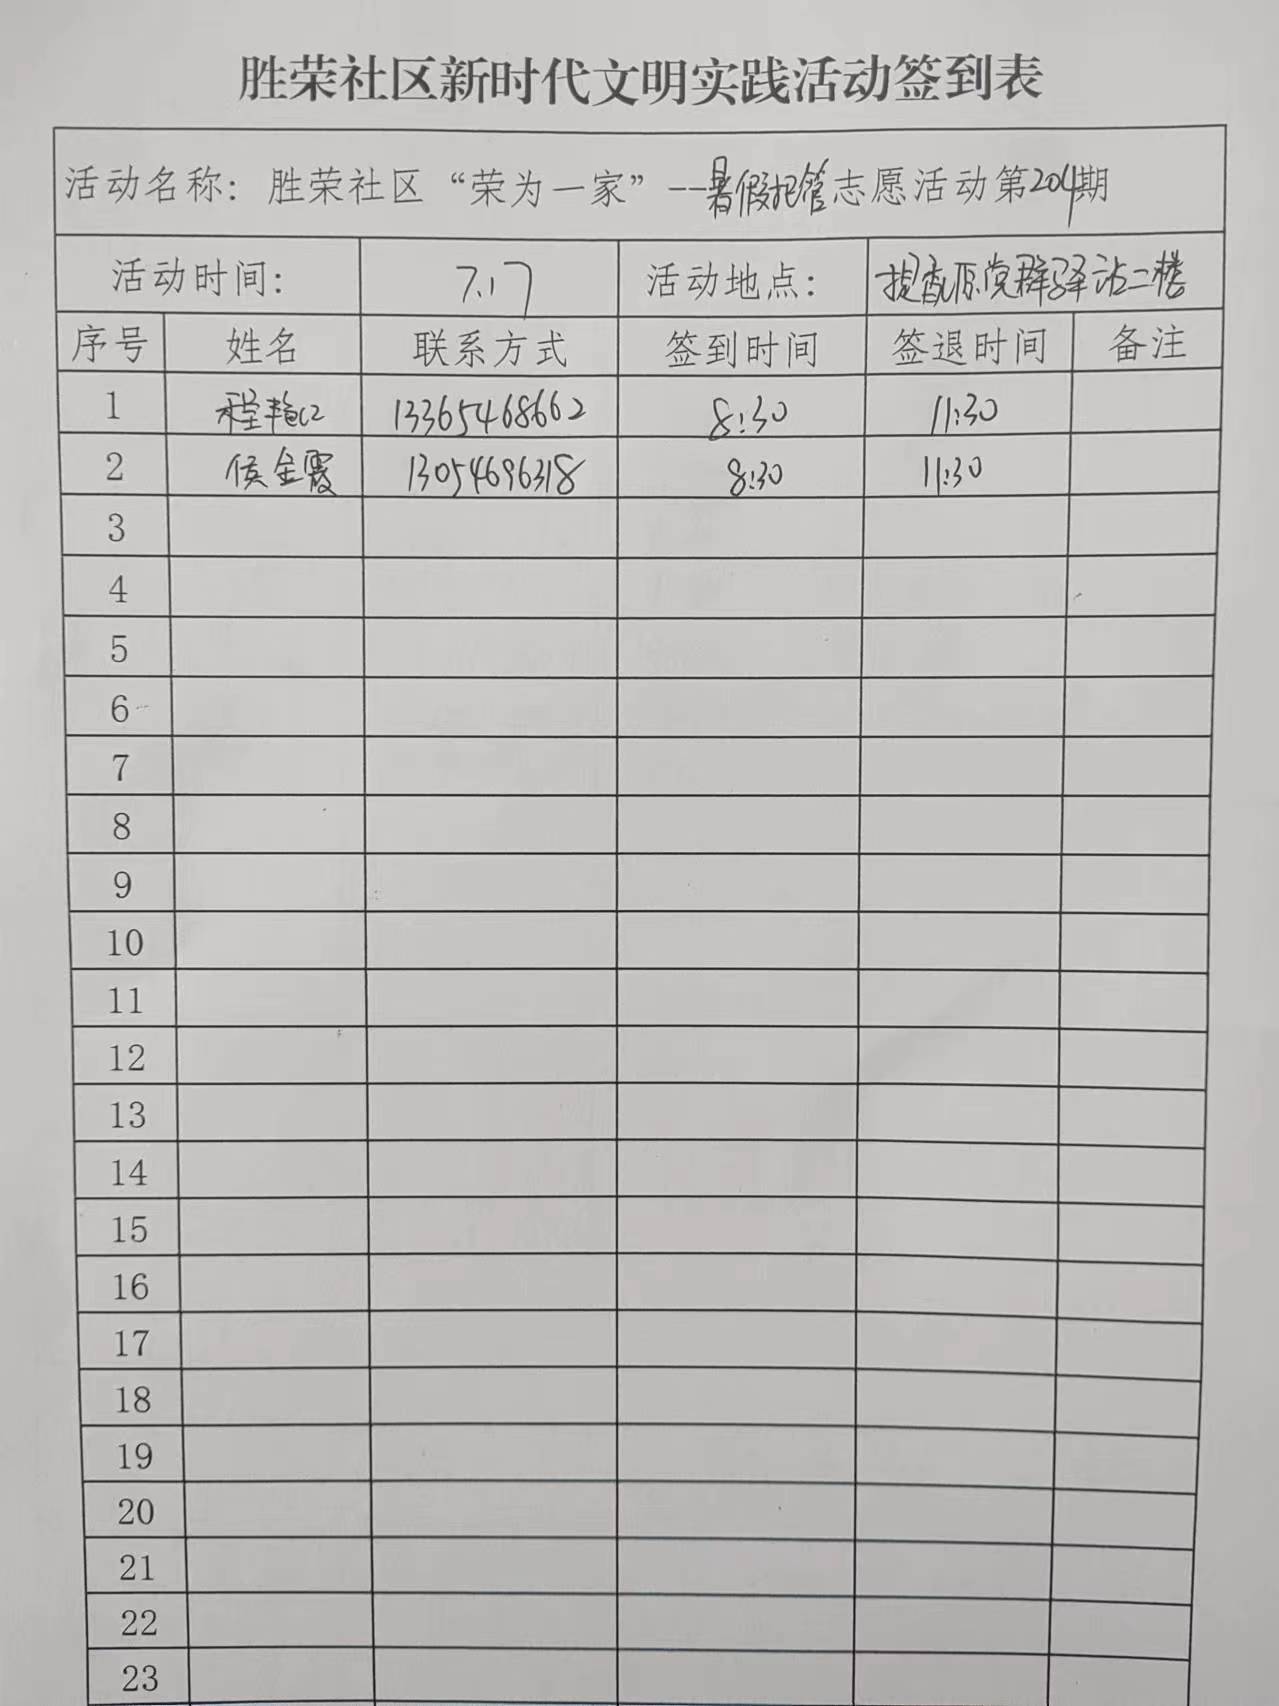 胜荣社区新时代文明实践活动签到表
活动名称：胜荣社区“荣为一家”--暑假托管志愿活动第204期
活动时间： 7.17 活动地点： 党群驿站二楼
序号 姓名 联系方式 签到时间 签退时间 备注
1 程艳红 13365468662 8:30 11:30
2 侯金霞 13054696318 8:30 11:30
3
4
5
6
7
8
9
10
11
12
13
14
15
16
17
18
19
20
21
22
23